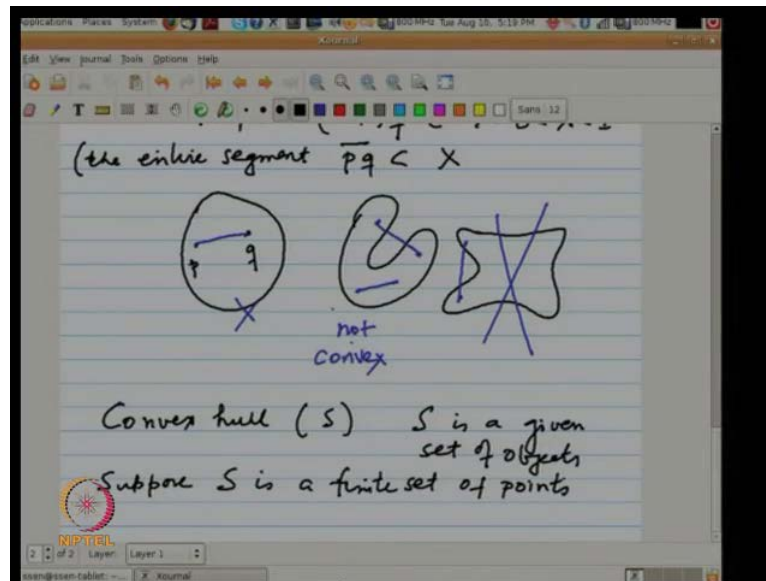 Applications Places System 800 MHz Tue Aug 16, 5:19 PM 800 MHz
Xournal
Edit View Journal Tools Options Help
T Sans 12
(the entire segment pq ⊂ X
p q
X
not
convex
Convex hull (S) S is a given
set of objects
Suppose S is a finite set of points
NPTEL
2 of 2 Layer: Layer 1
ssen@ssen-tablet: ~... Xournal